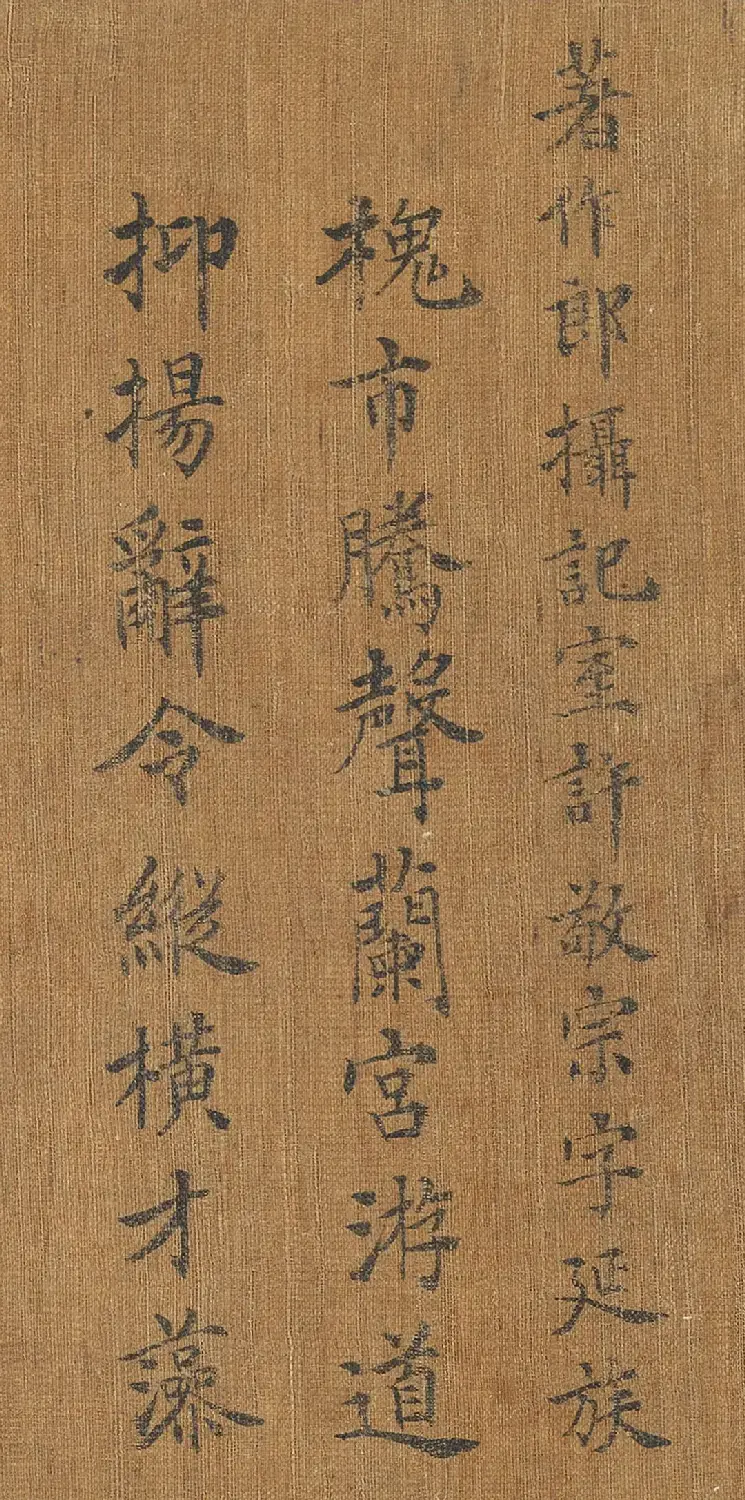 著作郎攝記室許敬宗字延族
槐市騰聲蘭宮游道
抑揚辭令縱橫才藻